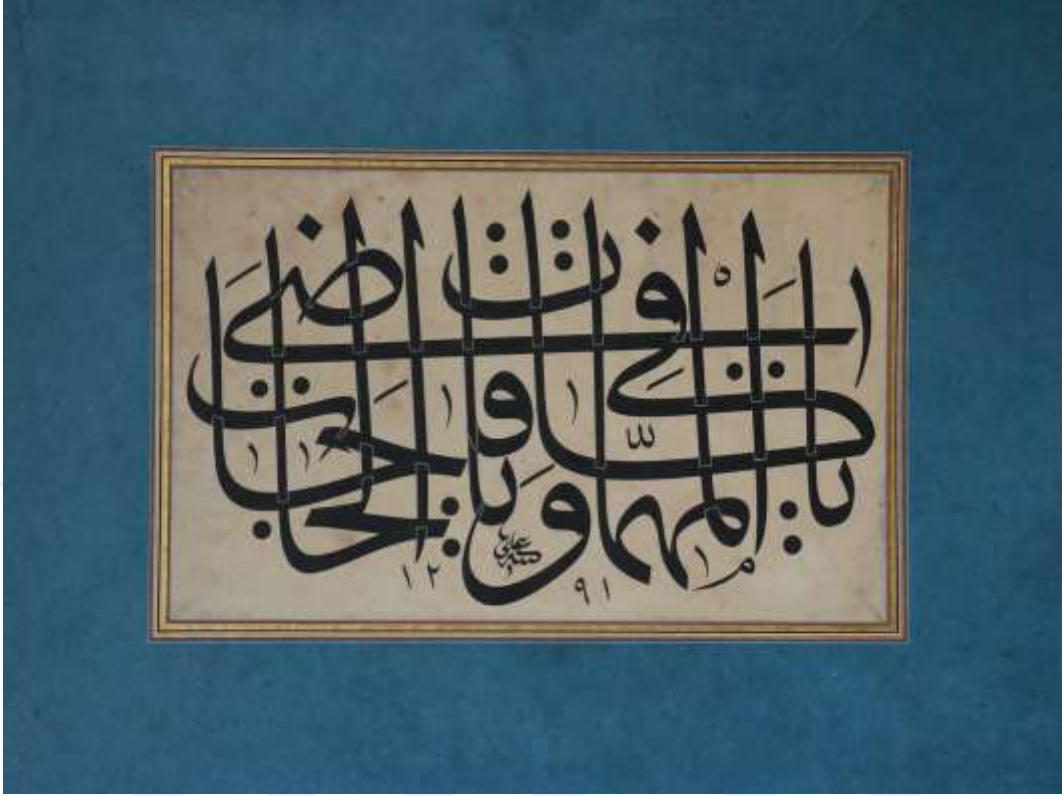 يا كافي المهمات ويا قاضي الحاجات
كتبه علي
١٢٩١